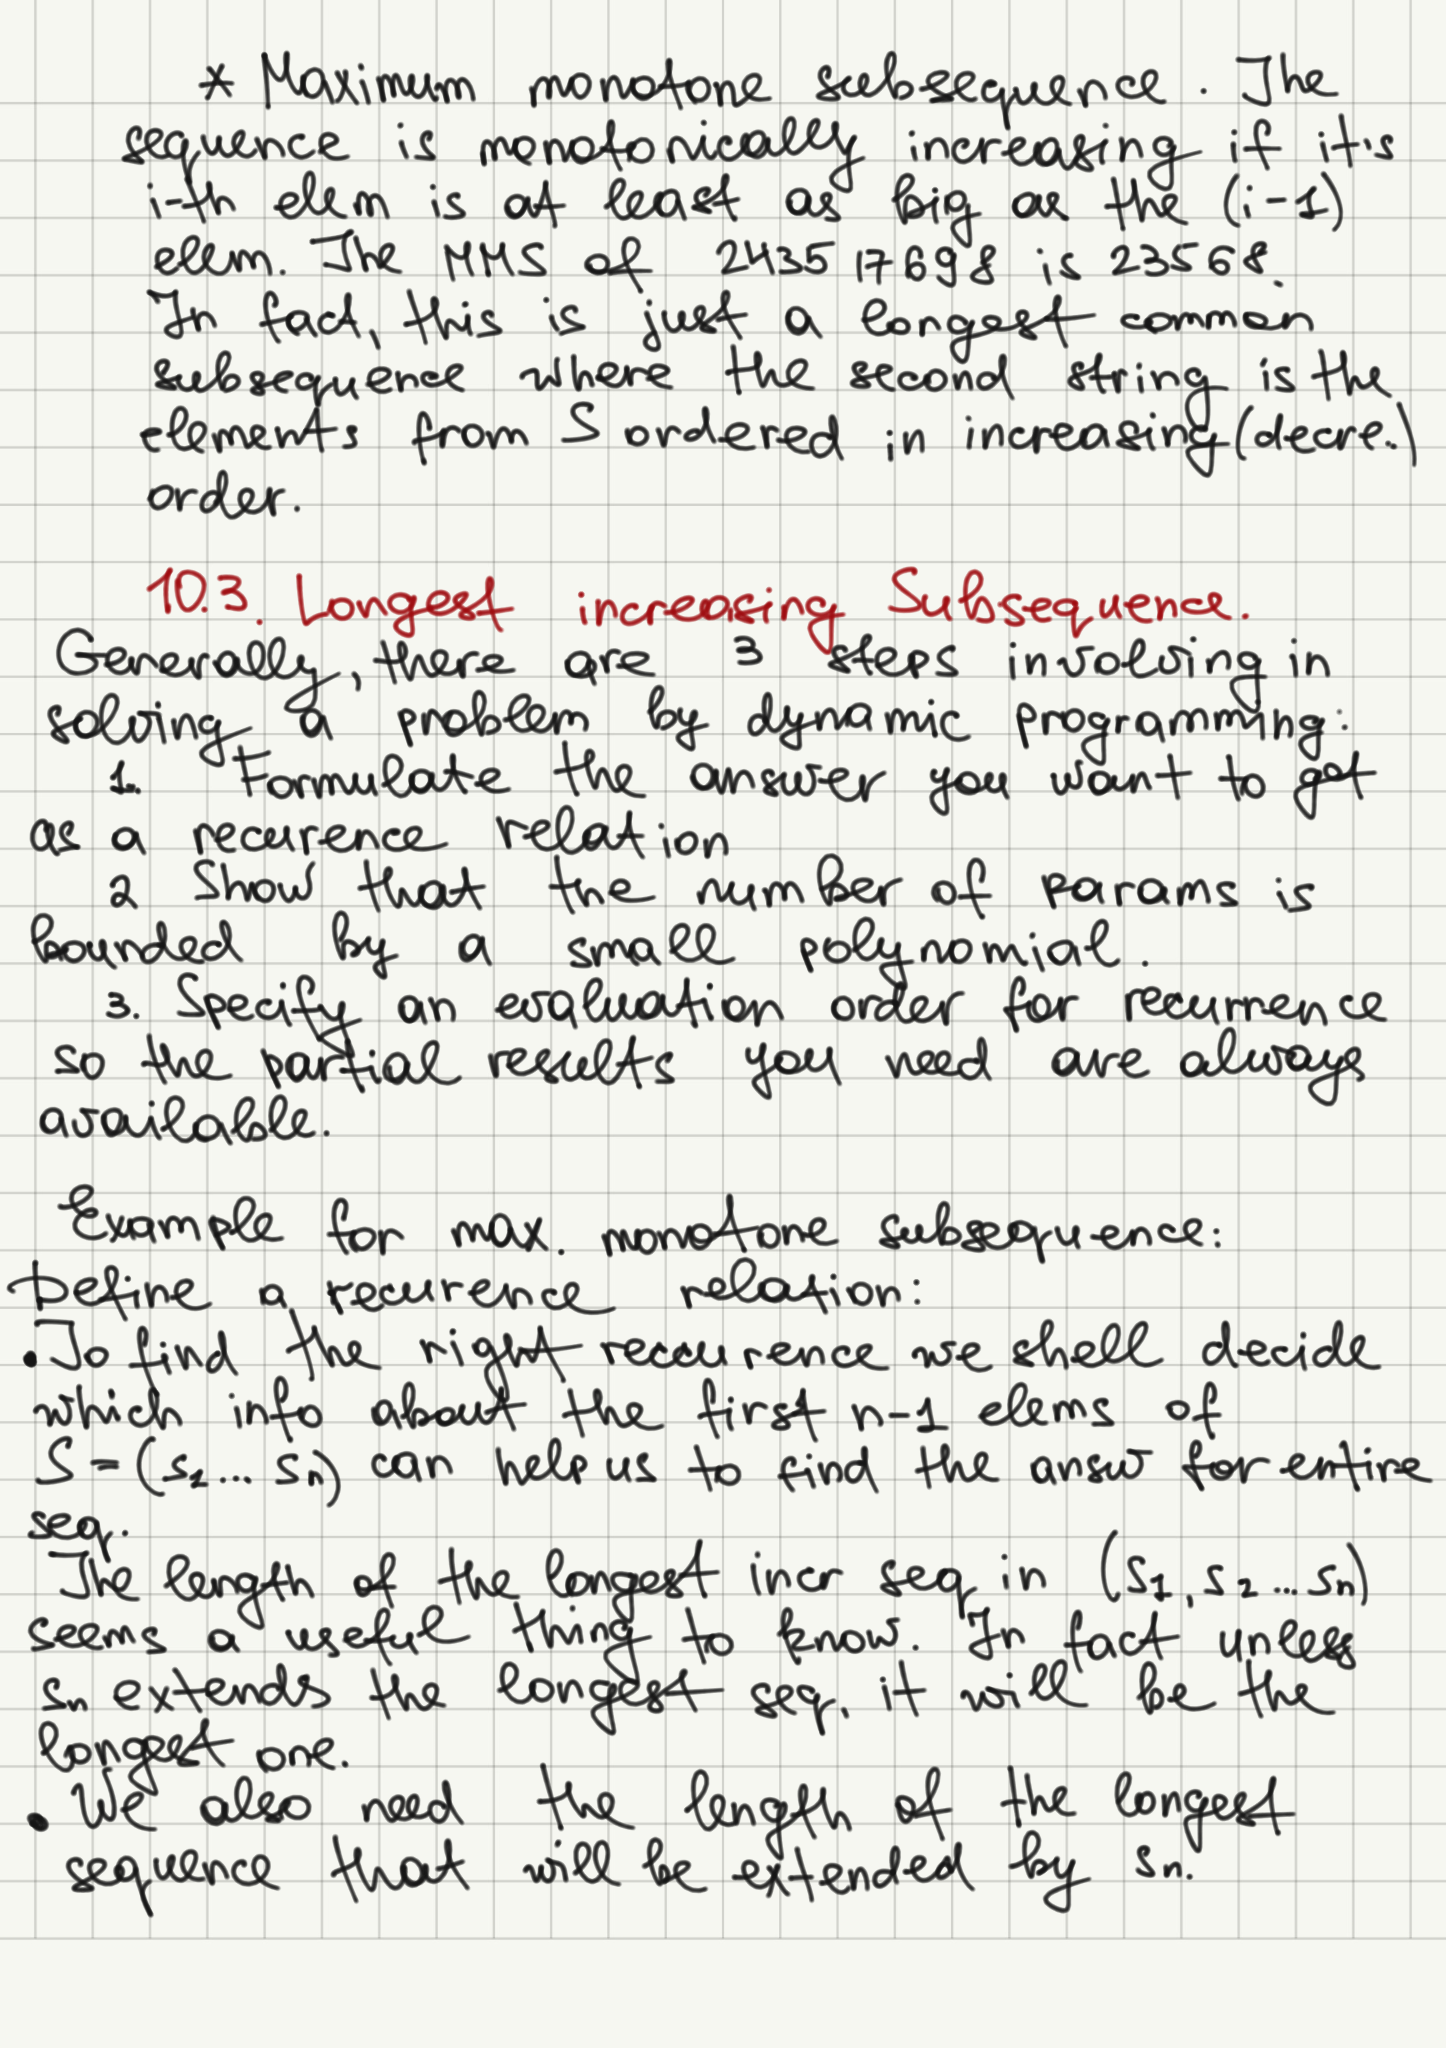 * Maximum monotone subsequence. The
sequence is monotonically increasing if it's
i-th elem is at least as big as the (i-1)
elem. The MMS of 243517698 is 23568.
In fact, this is just a longest common
subsequence where the second string is the
elements from S ordered in increasing (decre.)
order.
10.3. Longest increasing Subsequence.
Generally, there are 3 steps involving in
solving a problem by dynamic programming:
1. Formulate the answer you want to get
as a recurence relation
2 Show that the number of params is
bounded by a small polynomial.
3. Specify an evaluation order for recurrence
so the partial results you need are always
available.
Example for max. monotone subsequence:
Define a recurence relation:
• To find the right reccurence we shell decide
which info about the first n-1 elems of
S = (s1 ... sn) can help us to find the answ for entire
seq.
The length of the longest incr seq in (s1, s2 ... sn)
seems a useful thing to know. In fact unless
sn extends the longest seq. it will be the
longest one.
• We also need the length of the longest
sequence that will be extended by sn.